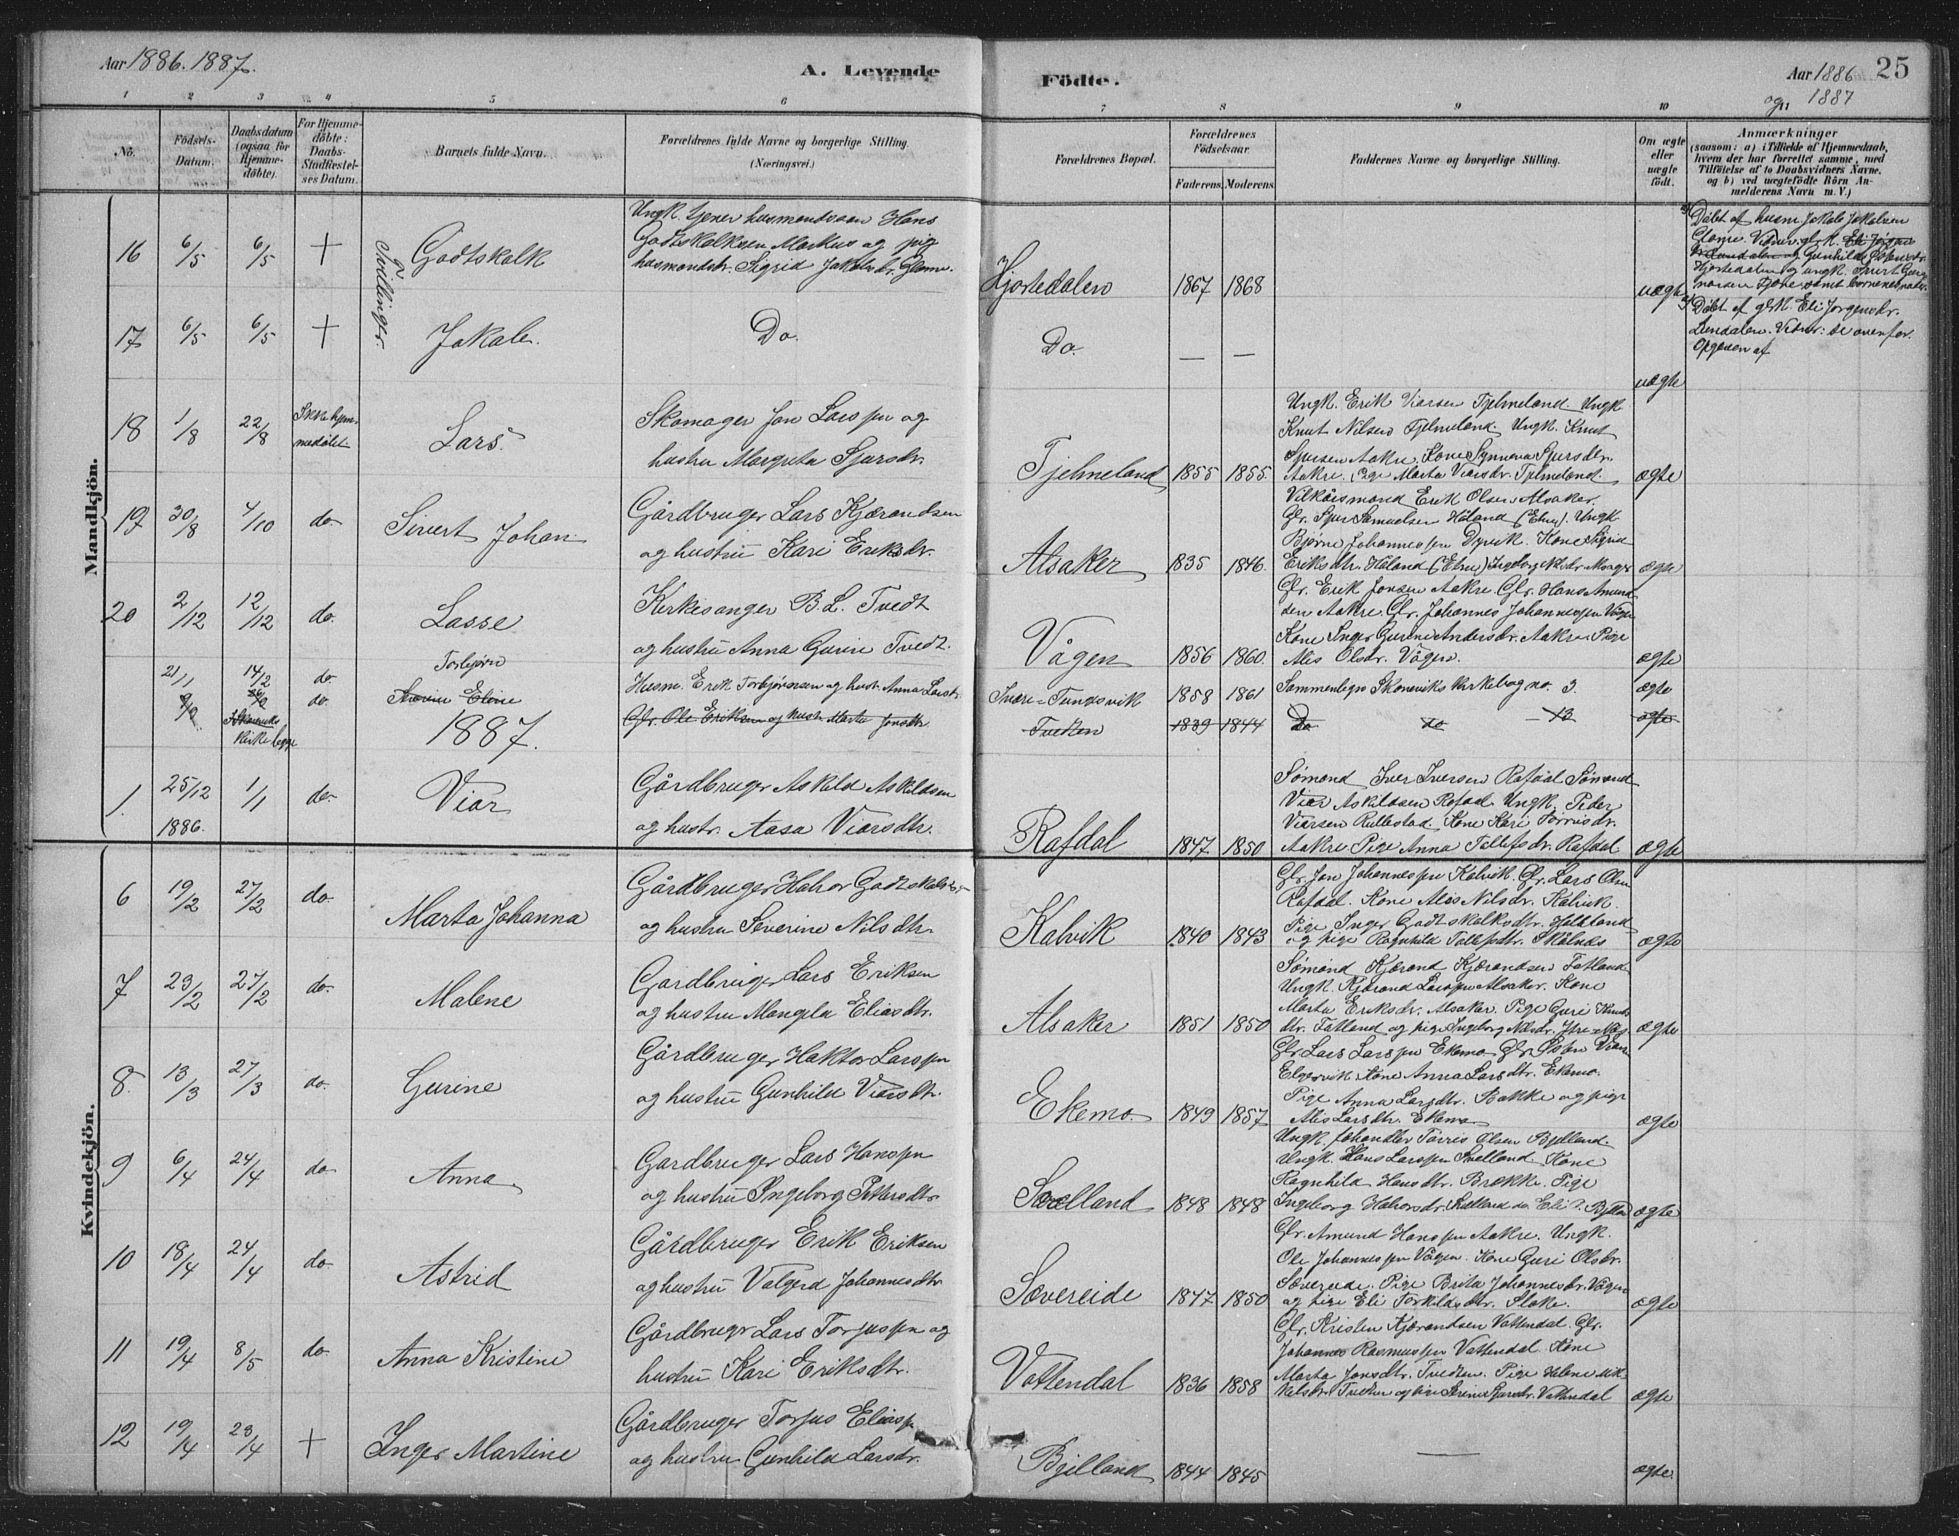 Aar 1886. 1887.
A. Levende Födte.
Aar 1886 og 1887
25
1 2 3 4 5 6 7 8 9 10 11
No.
Födsels-Datum.
Daabsdatum (ogsaa for Hjemme-döbte).
For Hjemme-döbte: Daabs-Stadfæstel-ses Datum.
Barnets fulde Navn.
Forældrenes fulde Navne og borgerlige Stilling. (Næringsvei.)
Forældrenes Bopæl.
Forældrenes Födselsaar.
Faderens. Moderens.
Faddernes Navne og borgerlige Stilling.
Om ægte eller uægte födt.
Anmærkninger
(saasom: a) i Tilfælde af Hjemmedaab, hvem der har forrettet samme, med Tilföielse af to Daabsvidners Navne, og b) ved uægtefödte Börn An-melderens Navn m. V.)
Mandkjön.
16 6/5 6/5 + Godtskalk
Tvillinger
Ungk. tjener husmandssøn Hans
Godtskalksen Markus og pige
husmandsdr. Sigrid Jakobsdr. Glome.
Hjortedalen 1867 1868
uægte
Døbt af husm Jakob Jakobsen
Glome. Gunhild
Hjortedalen og ungk.
17 6/5 6/5 + Jakob
Do.
Do. — —
uægte
Døbt af gk. Eli Jørgensdr.
Lindalen. Vidner: se ovenfor.
Opgaven af
18 1/8 22/8 Ikke hjemmedøbt Lars
Skomager Jon Larssen og
hustru Margreta Sjursdr.
Tjelmeland 1855 1855
Ungk. Erik Viarsen Tjelmeland. Ungk
Knut Nilsen Tjelmeland. Ungk. Knut
Sjursen Aakre. Kone Synneva Sjursdtr.
Aakre. Pige Marta Viarsdr. Tjelmeland.
ægte
19 30/8 4/10 do Sivert Johan
Gårdbruger Lars Kjærandsen
og hustru Kari Eriksdr.
Alsaker 1835 1846
Vilkårsmand Erik Olsen Alsaker.
Gbr. Sjur Samuelsen Håland (Etne). Ungk
Bjørne Johannessen Dyrvik. Kone Sigrid
Eriksdtr. Håland (Etne) Ingeborg
ægte
20 2/12 12/12 do. Lasse
Kirkesanger B. L. Tvedt
og hustru Anna Gurine Tvedt.
Vågen 1856 1860
Gbr. Erik Jonsen Aakre. Gbr. Hans Amund-
sen Aakre. Gbr. Johannes Johannessen Vågen
Kone Inger Gurine Andersdr. Aakre. Pige
Ales Olsdr. Vågen.
ægte
21/1 14/2 do Torbjørn
Husm. Erik Torbjørnsen og hust. Anna Larsdr.
Indre-Tungsvik 1858 1861
Sammenlign Skoneviks kirkebog no. 3.
ægte
9/2 do Eline
Skoneviks kirkebog
Gbr. Ole Eriksen og hust. Marta Jonsdtr
Tvedten 1839 1844 Do do — 13 ægte
1887.
1. 25/12 1886. 1/1 do. Viar
Gårdbruger Askild Askildsen
og hustr. Aasa Viarsdtr.
Rafdal 1847 1850
Sømand Iver Iversen Rafdal Sømand
Viar Askildsen Rafdal. Ungk. Peder
Viarsen Rullestad. Kone Kari Torrisdr.
Aakre. Pige Anna Tollefsdr. Rafdal
ægte
Kvindekjön.
6 19/2 27/2 do. Marta Johanna
Gårdbruger Halvor Godtskalksen
og hustru Severine Nilsdtr.
Kalvik 1840 1843
Gbr. Jon Johannessen Kalvik. Gbr. Lars Olsen
Rafdal. Kone Ales Nilsdr. Kalvik.
Pige Inger Godtskalksdtr.
og pige Ragnhild Tollefsdtr. Skålnes
ægte
7 23/2 27/2 do. Malene
Gardbruger Lars Eriksen
og hustru Mangela Eliasdtr.
Alsaker 1851 1850
Sømand Kjærand Kjærandsen Fatland
Ungk. Kjærand Larssen Alsaker. Kone
Marta Eriksdr. Alsaker. Pige Guri Knuts-
dtr. Fatland og pige Ingeborg
ægte
8. 13/3 27/3 do. Gurine
Gårdbruger Haktor Larssen
og hustru Gunhild Viarsdtr.
Ekemo 1849 1857
Gbr. Lars Larssen Ekemo. Gbr.
Kone Anna Larsdtr. Ekemo.
Pige Anna Larsdtr. Bakke og pige
Ales Larsdtr. Ekemo
ægte
9 6/4 24/4 do Anna
Gardbruger Lars Hanssen
og hustru Ingeborg Pettersdtr.
Sælland 1848 1848
Ungk. Torris Olsen Bjelland.
Ungk. Hans Larssen Sælland. Kone
Ragnhild Hansdtr. Brække. Pige
Ingeborg
ægte
10 18/4 24/4 do. Astrid
Gårdbruger Erik Eriksen
og hustru Valgerd Johannesdtr.
Sævereide 1847 1850
Gbr. Amund Hanssen Aakre. Ungk.
Ole Johannessen Vågen. Kone Guri Olsdr.
Sævereide. Pige Brita Johannesdr. Vågen
og pige Eli Torkildsdtr. Støle.
ægte
11 19/4 8/5 do. Anna Kristine
Gårdbrugr Lars Torjussen og
hustru Kari Eriksdtr.
Vattendal 1836 1858
Gbr. Kristen Kjærandsen Vattendal. Gbr.
Johannes Rasmussen Vattendal. Kone
Marta Jonsdtr. Tvedten. Pige Helene Mik-
kelsdr. Tvedten og pige Vattendal
ægte
12 19/4 23/4 + Inger Martine
Gårdbruger Torjus Eliassen
og hustru Gunhild Larsdr.
Bjelland 1844 1845
—
ægte.